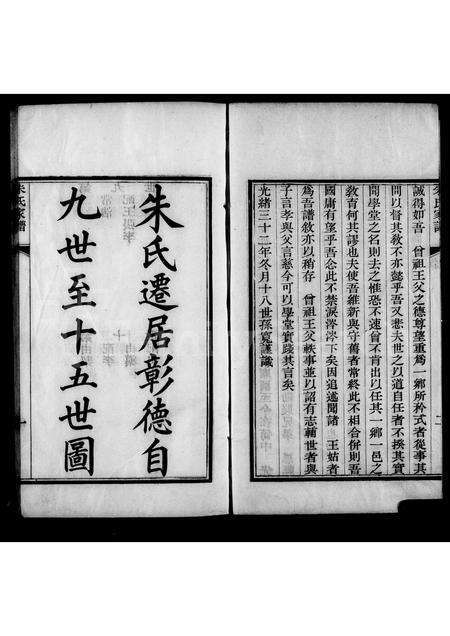 誠得如吾 曾祖王父之德尊望重為一鄉所矜式者從事其
間以督其教不亦懿乎吾又悲夫世之以道自任者不揆其實
聞學堂之名則去之惟恐不速曾不肯出以任其一鄉一邑之
教育何其謬也夫使吾維新與守舊者常終此不相合併則吾
國庸有望乎吾念此不禁淚滂滂下矣因追述聞諸 王姑者
為吾譜敘亦以稍存 曾祖王父軼事並以詔有志輔世者與
子言孝與父言慈今可以學堂實踐其言矣
光緒三十二年冬月十八世孫寬謹識
朱氏家譜
朱氏遷居彰德自
九世至十五世圖
朱氏家譜